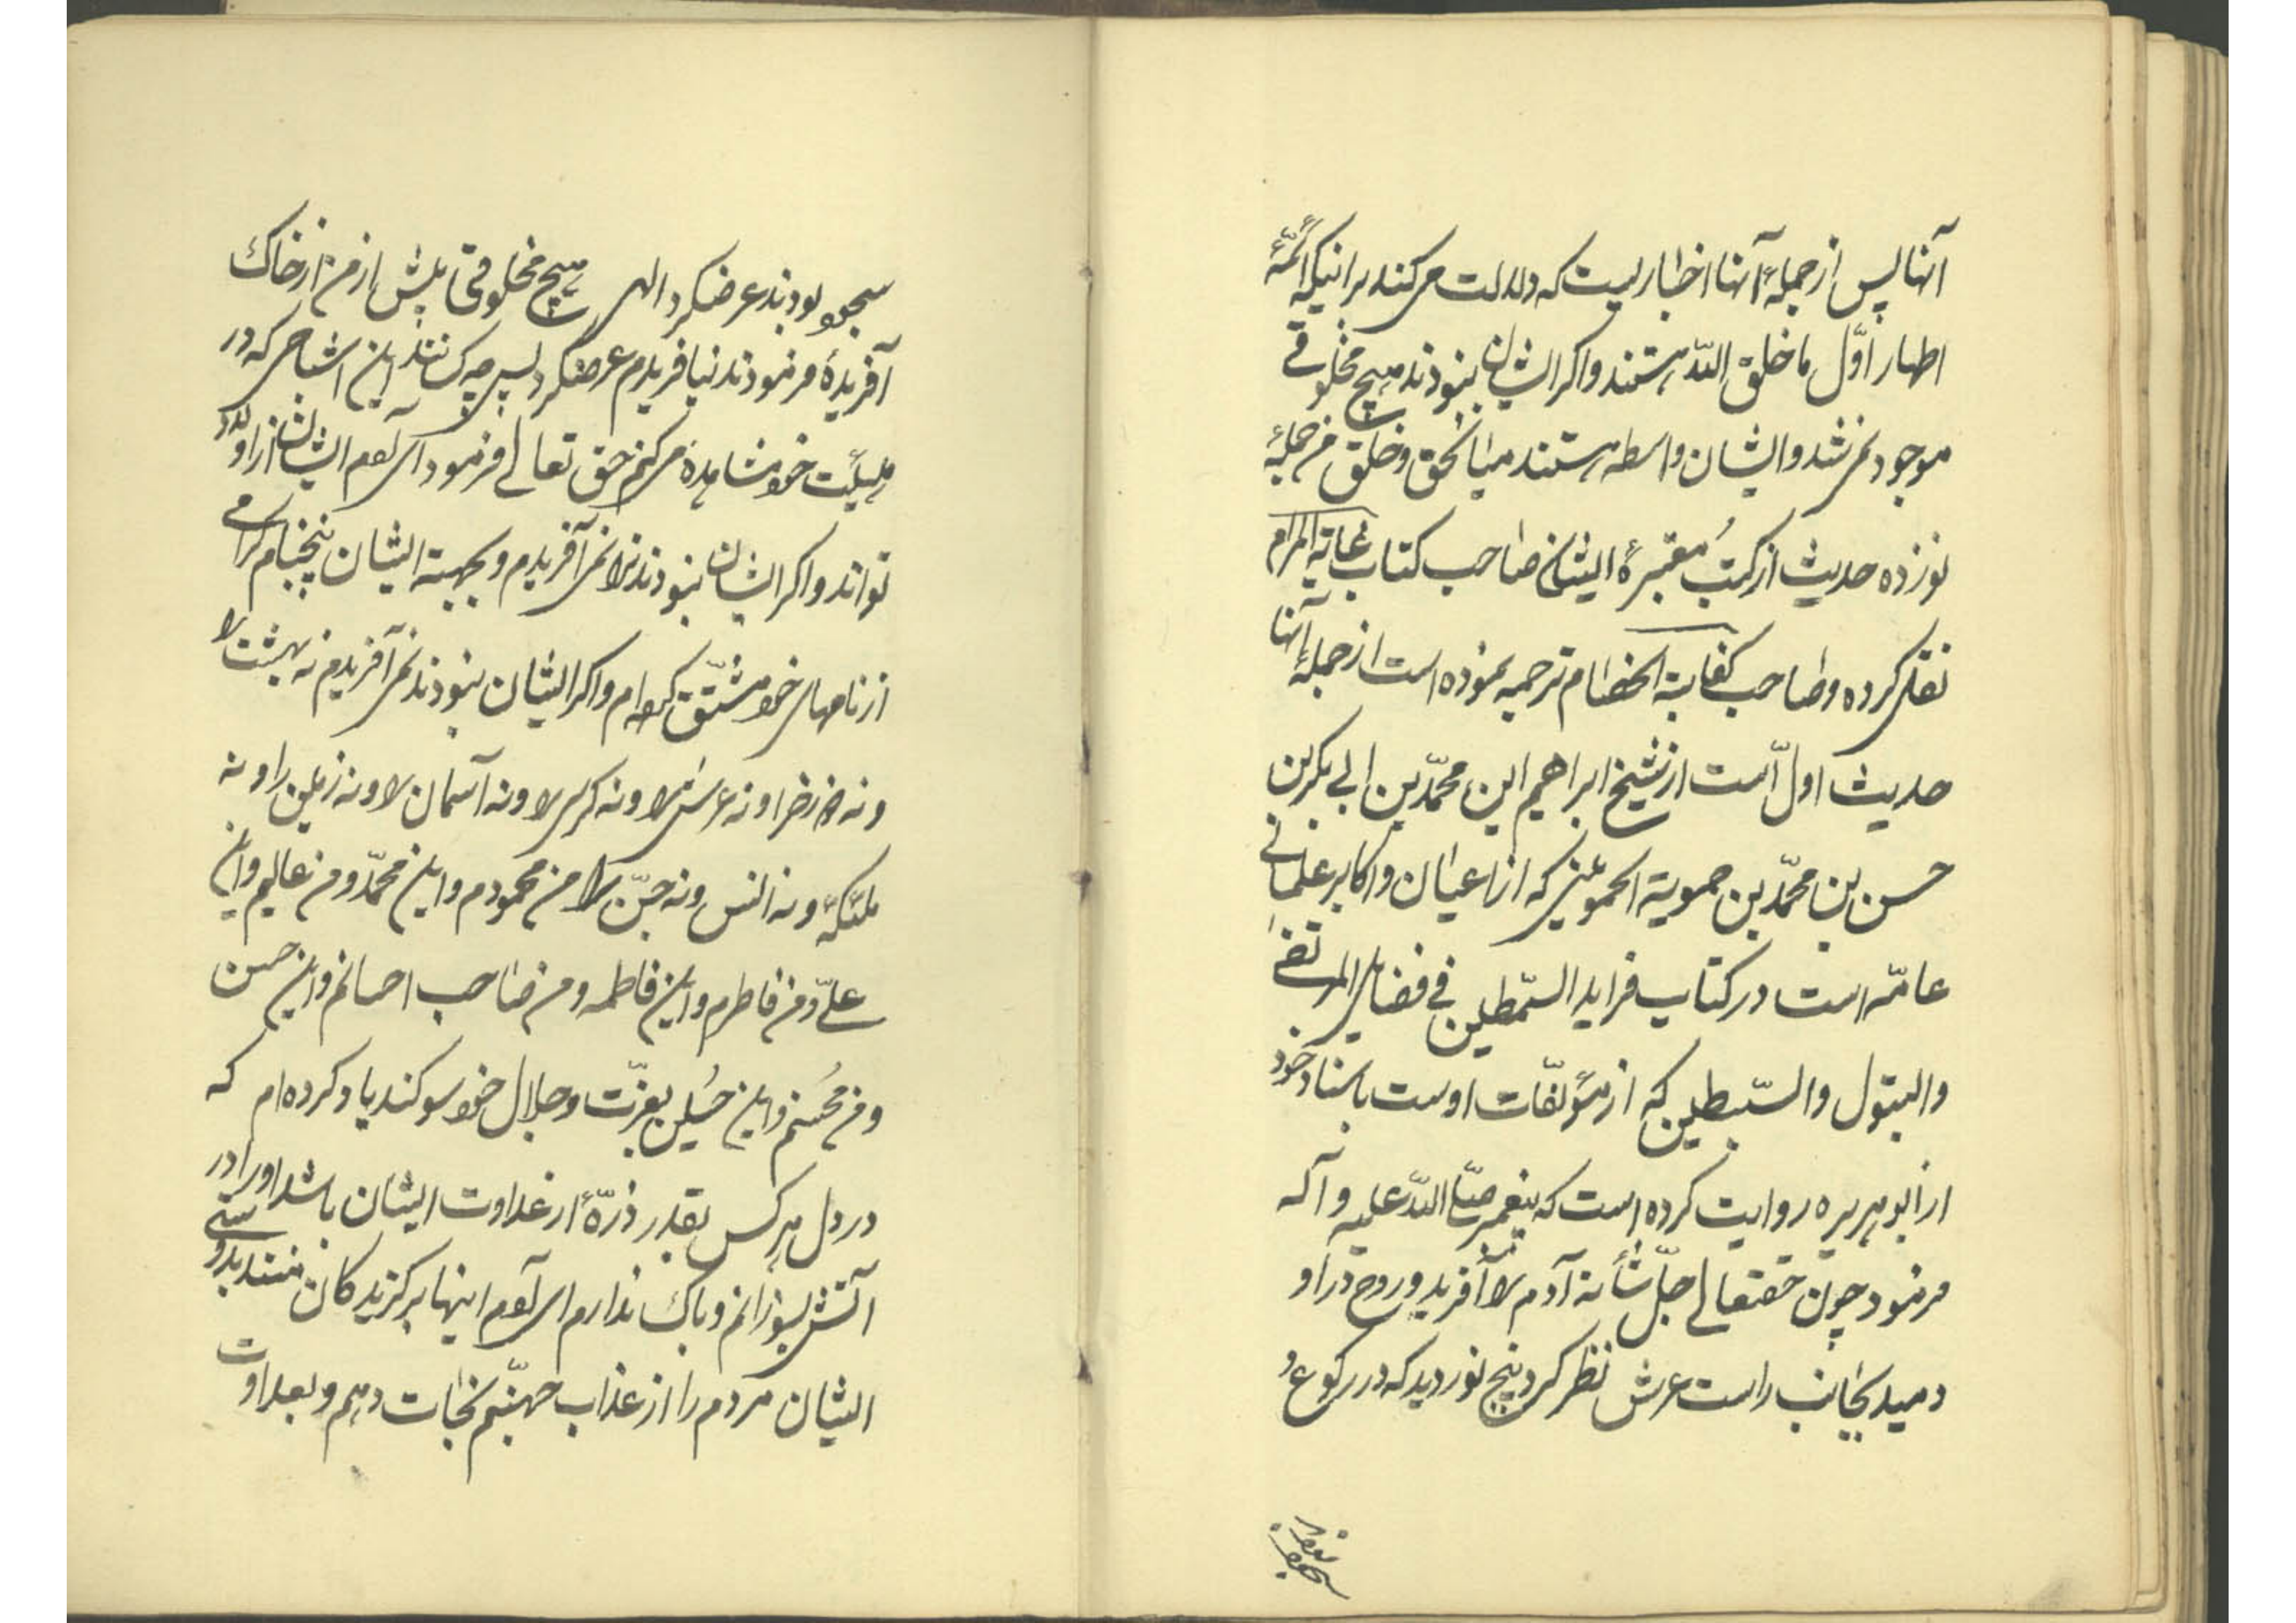 آنها پس از جملهٔ آنها اخباریست که دلالت می کند بر اینکه ائمّهٔ
اطهار اوّل ما خلق اللّه هستند و اکر ایشان نبودند هیچ مخلوقی
موجود نمی شد و ایشان واسطه هستند میان حق و خلق من جمله
نوزده حدیث از کتُب معتبرهٔ ایشان صاحب کتاب غایة المرام
نقل کرده و صاحب کفایة الخصام ترجمه نموده است از جملهٔ آنها
حدیث اول است از شیخ ابراهیم ابن محمّد بن ابی بکر بن
حسن بن محمّد بن حمویة الحموینی که از اعیان و اکابر علمای
عامّه است در کتاب فراید السّمطین فی فضایل المرتضی
والبتول والسّبطین که از مؤلفّات اوست باسناد خود
از ابو هریره روایت کرده است که پیغمبر صلّی اللّه علیه و آله
فرمود چون حقتعالی جلّ شأنه آدم را آفرید و روح در او
دمید بجانب راست عرش نظر کرد پنج نور دید که در رکوع و
سجود بودند
سجود بودند عرضکرد الهی هیچ مخلوقی پیش از من از خاک
آفریدهٔ فرمودند نیافریدم عرضکرد پس چه کسانند این اشباحی که در
هیئت خود مشاهده می کنم حق تعالی فرمود ای آدم ایشان از اولاد
تواند و اکر ایشان نبودند ترا نمی آفریدم و بجهة ایشان پنج نام کرامی
از نامهای خود مشتّق کرده ام و اکر ایشان نبودند نمی آفریدم نه بهشت را
و نه دوزخ را و نه عرش را و نه کرسی را و نه آسمان را و نه زمین را و نه
ملئکه و نه انس و نه جنّ را من محمودم و این محمّد و من عالیم و این
علیّ و من فاطرم و این فاطمه و من صاحب احسانم و این حسن
و من مُحسنم و این حُسین بعزّت و جلال خود سوکند یاد کرده ام که
در دل هر کس بقدر ذرّهٔ از عداوت ایشان باشد او را در
آتش بسوزانم و باک ندارم ای آدم اینها برکزیدکان منند بدوستی
ایشان مردم را از عذاب جهنّم نجات دهم و بعداوت